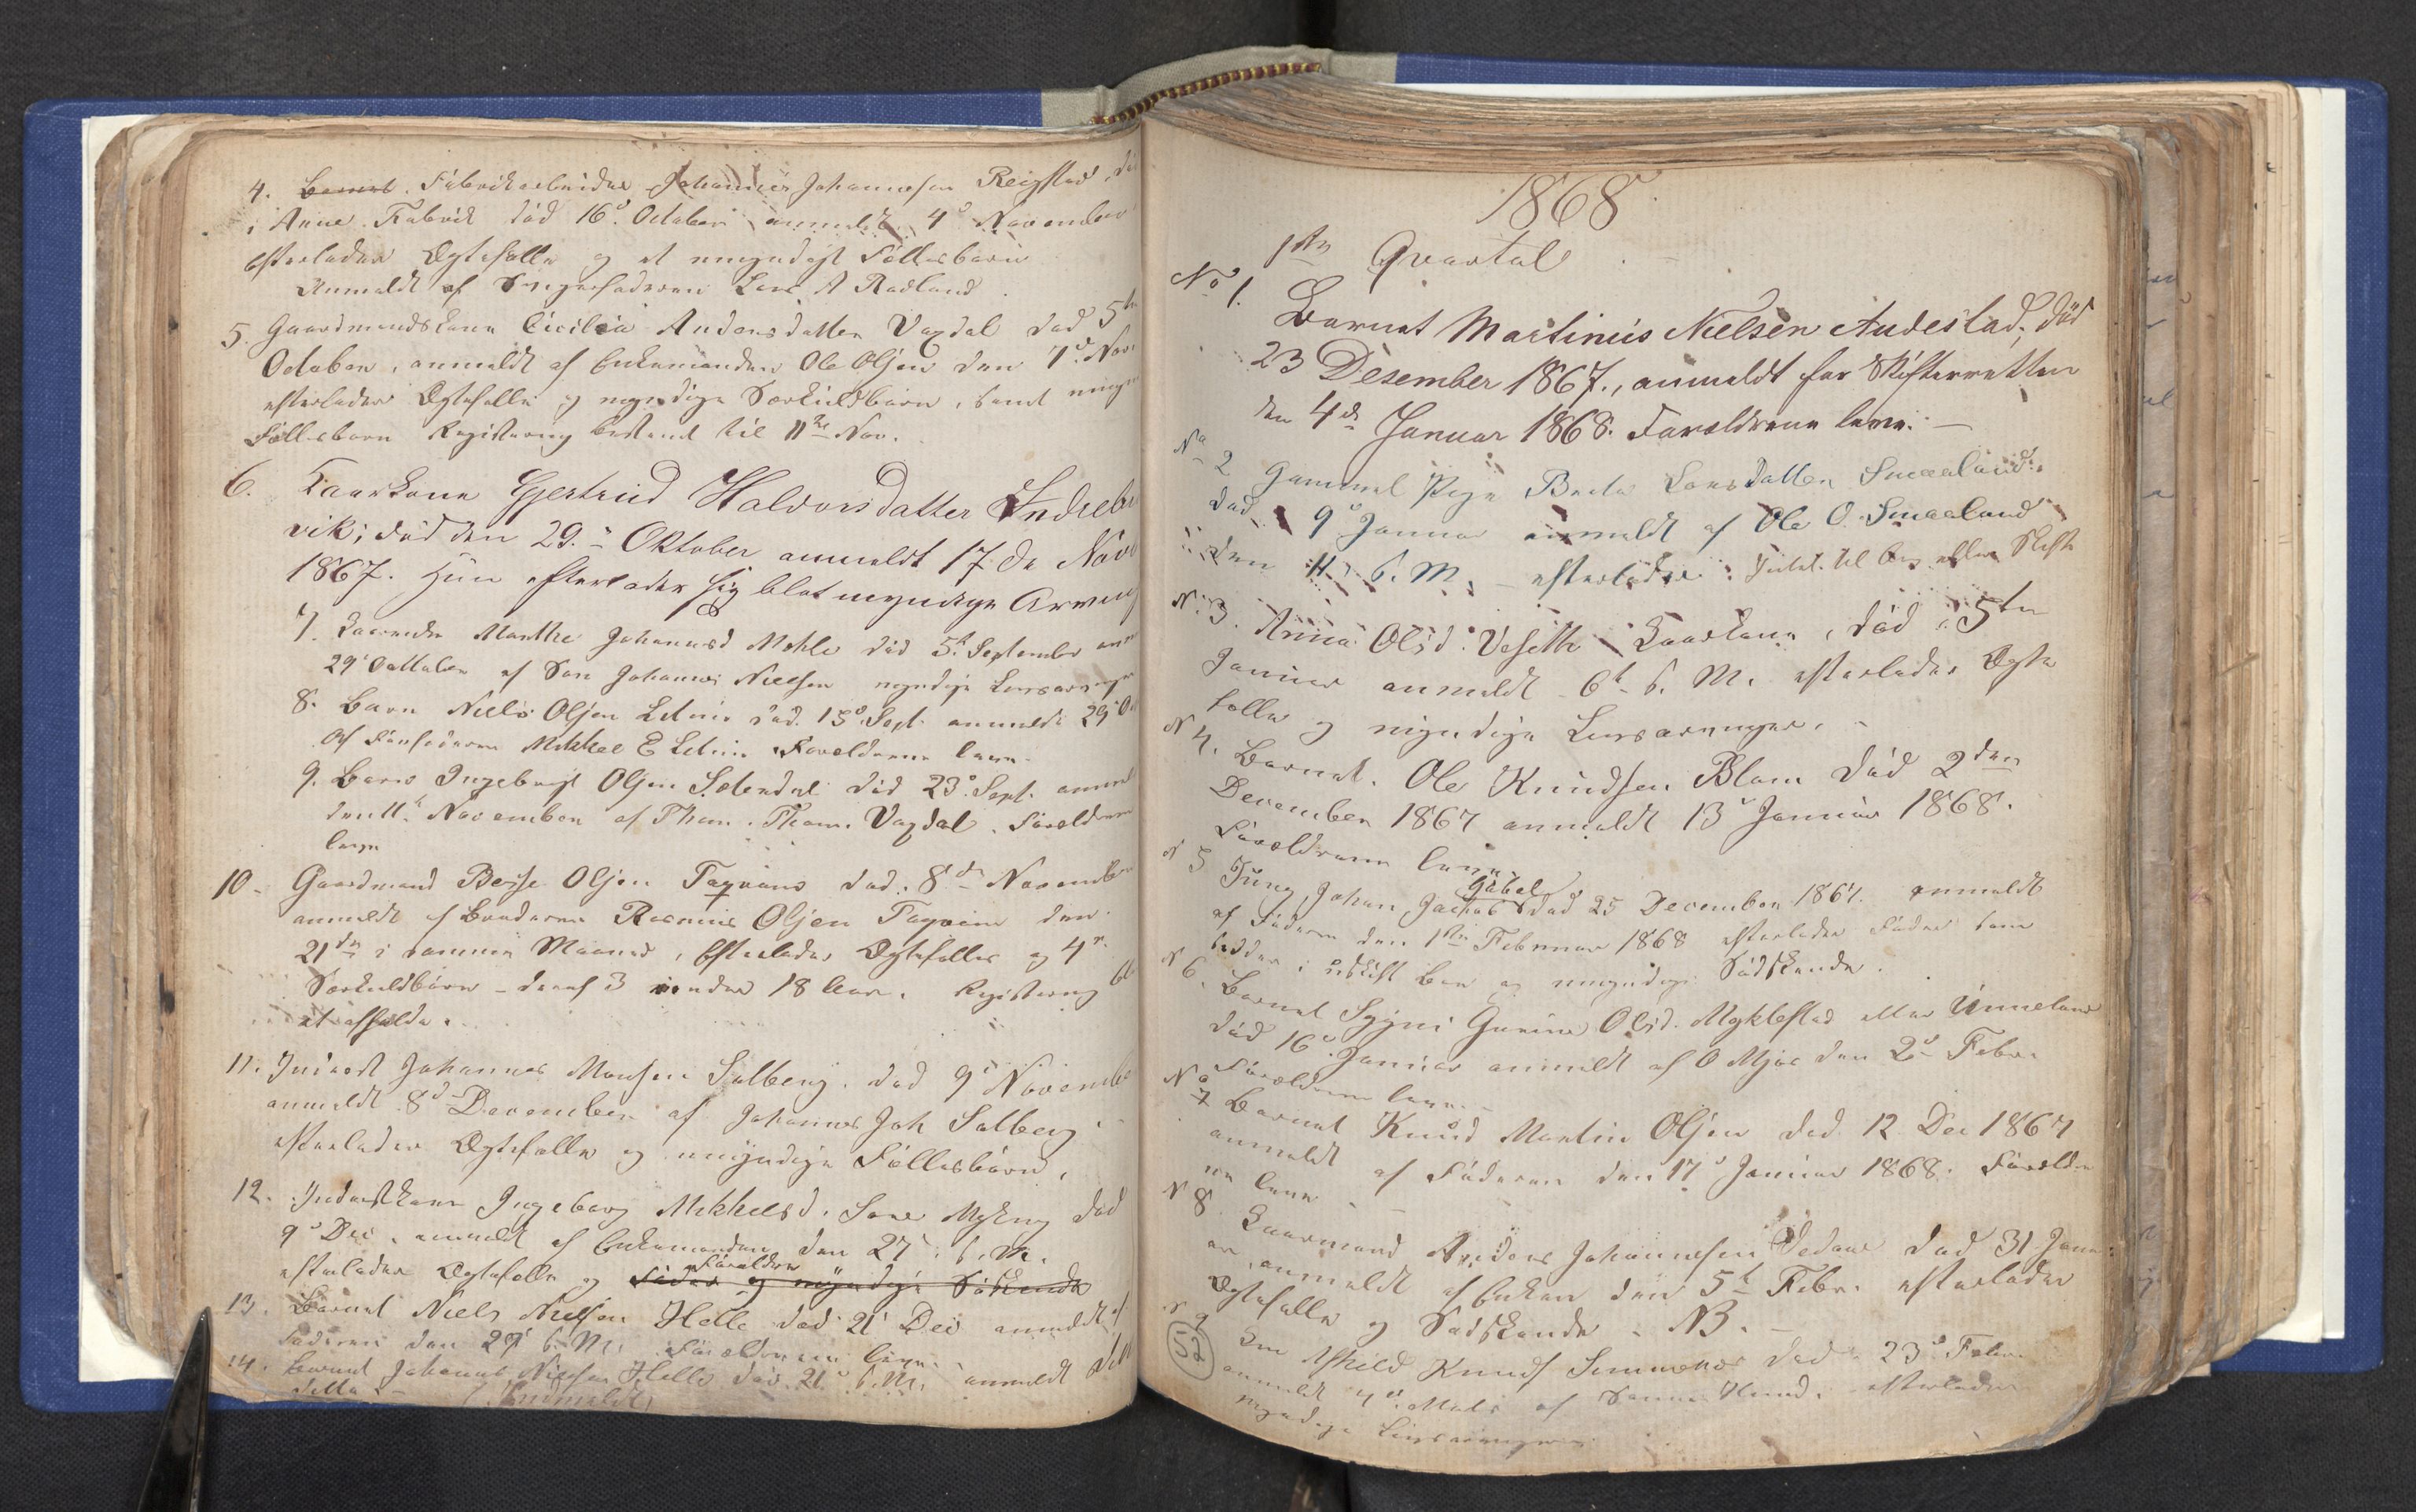 4. Barnet. Fabrikarbeider Johannes Johannesen Reigstad, dö
i Arne Fabrik död 16d October anmeldt 4d November
efterlader Ægtefælle og et umyndigt Fællesbarn
Anmeldt af Svigerfaderen Lars A Radland
5. Gaardmandskone Cicilia Andersdatter Vaxdal död 5te
October, anmeldt af Enkemanden Ole Olsen den 7d Nov.
efterlader Ægtefælle og myndige Særkuldbørn, samt
Fællesbørn Registrering bestemt til 11te Nov.
6. Kaarkone Gjertrud Haldorsdatter Indrebr
vik; död den 29. Oktober anmeldt 17 de Nov
1867. Hun efterlader sig blot myndige Arving
7. Kaarenke Marthe Johannesd Mehle död 5t September
29d October af Søn Johannes Nielsen myndige Livsarvinger
8. Barn Niels Olsen död 15d Sept. anmeldt 29d
af Farfaderen Mikkel E Forældrene leve.
9. Barn Ingebrigt Olsen död 23d Sept. anmel
den 11t November af Thom. Thoms. Vaxdal. Forældrene
leve
10. Gaardmand Børge Olsen död. 8de November
anmeldt af Broderen Rasmus Olsen den
21de i samme Maaned, efterlader Ægtefælle og 4
Særkuldbørn - deraf 3 under 18 Aar. Registrering
at afholde.
11. Inderst Johannes Monsen Solberg. död 9d Novembe
anmeldt 8d December af Johannes Joh Solberg
efterlader Ægtefælle og umyndige Fællesbørn,
12. Inderstkone Ingeborg Mikkelsd. död
9d Dec. anmeldt af Enkemanden den 27d s. M.
Forældre
efterlader Ægtefælle og Fader og myndige Søskende
13. Barnet Niels Nielsen Helle död 21d Dec anmeldt af
Faderen den 29d s. M. Forældrene leve.
14. Barnet Johannes Nielsen Helle död 21d s. M. anmeldt
1868
1ste Qvartal
No 1. Barnet Martinus Nielsen Audestad, död
23 Desember 1867., anmeldt for Skifteretten
den 4de Januar 1868. Forældrene leve. -
No 2 Gammel Pige Brita Larsdatter Smaaland
död 9d Januar anmeldt af Ole O. Smaaland
den 11d s. M. - efterlader Intet til Arv eller Skifte
N. 3. Anna Olsd. Veseth Kaarkone, död 5te
Januar anmeldt 6t s. M. efterlader Ægte
fælle og myndige Livsarvinger.
N 4. Barnet. Ole Knudsen Blom död 2den
December 1867 anmeldt 13d Januar 1868.
Forældrene leve.
Gabel
N 5 Ung Johan Jachob död 25 December 1867. anmeldt
af Faderen den 1ste Februar 1868 efterlader Fader som
sidder i uskift Bo og umyndige Södskende.
N 6. Barnet Gurine Olsd. Myklestad eller Unneland
död 16d Januar anmeldt af O Mjøs den 2d Febr.
Forældrene leve. -
No 7 Barnet Knud Martin Olsen död 12 Dec 1867
anmeldt af Faderen den 17d Januar 1868. Forældre
ne leve -
N 8. Kaarmand Anders Johannesen Vedaae död 31 Janu
ar, anmeldt af Enken den 5t Febr. efterlader
Ægtefælle og Södskende. NB. -
N 9 Knuds död 23d Febr.
52
anmeldt 4d Marts af Sønnen Knud. efterlader
myndige Livsarvinger